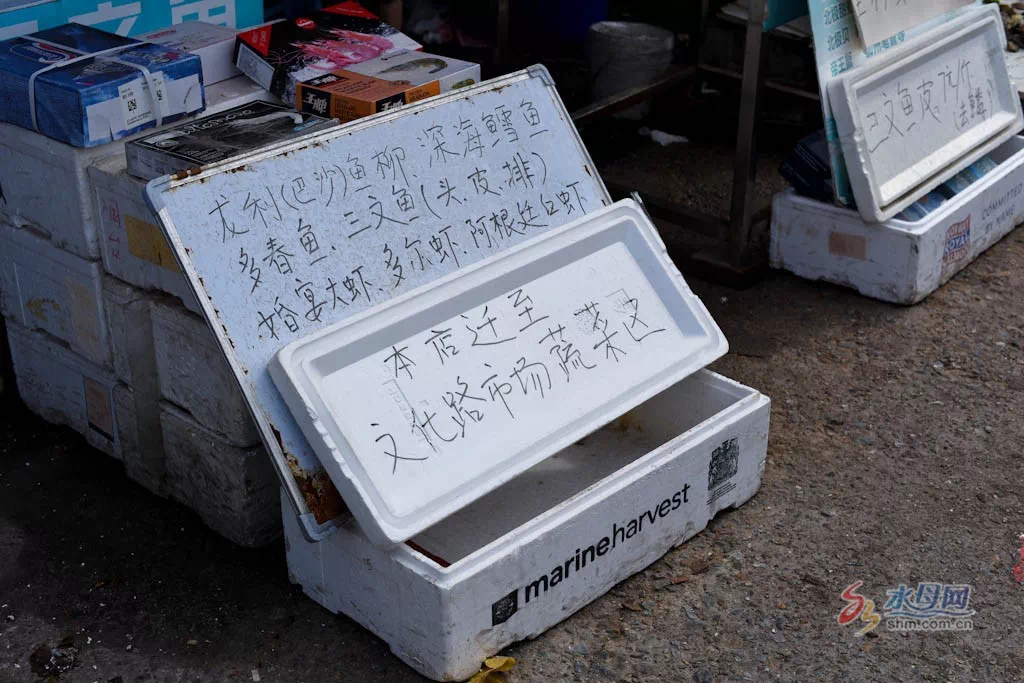 龙利(巴沙)鱼柳、深海鳕鱼
多春鱼、三文鱼(头、皮、排)
婚宴大虾、多尔虾、阿根廷红虾
本店迁至
文化路市场蔬菜区
marineharvest
三文鱼皮:7元/斤
(去鳞)
COMMITTED
BY NAME
ROYAL
水母网
shm.com.cn